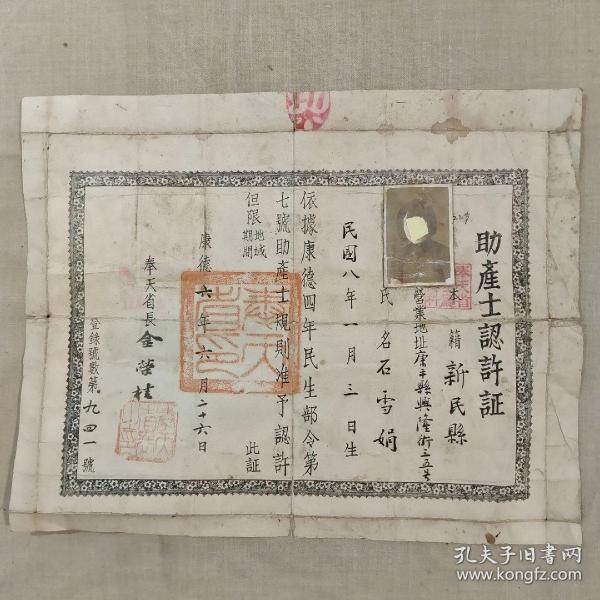 助產士認許証
本籍 新民縣
營業地址康平縣興隆街三五号
氏名 石雪娟
民國八年一月三日生
依據康德四年民生部令第
七號助產士規則准予認許
但限地域
期間
此証
康德六年六月二十六日
奉天省長 金榮桂
登錄號數第九四一號
奉天省之印
孔夫子旧书网
www.kongfz.com